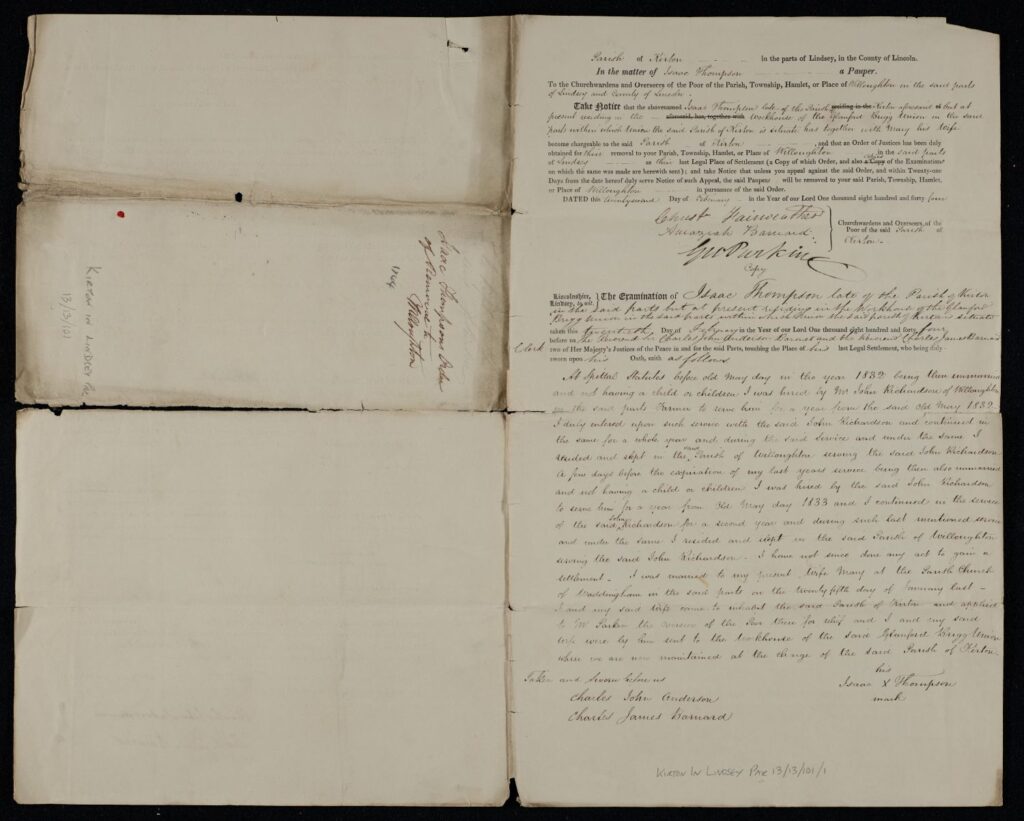 Parish of Kirton in the parts of Lindsey, in the County of Lincoln.
In the matter of Isaac Thompson a Pauper.
To the Churchwardens and Overseers of the Poor of the Parish, Township, Hamlet, or Place of Willoughton in the said parts
of Lindsey and County of Lincoln.
Take Notice that the abovenamed Isaac Thompson late of the Parish residing in the Kirton aforesaid but at
present residing in the aforesaid, has, together with Workhouse of the Glanford Brigg Union in the said
parts within which Union the said Parish of Kirton is situate has together with Mary his Wife
become chargeable to the said Parish of Kirton, and that an Order of Justices has been duly
obtained for their removal to your Parish, Township, Hamlet, or Place of Willoughton in the said parts
of Lindsey as their last Legal Place of Settlement (a Copy of which Order, and also a Copy of the Examination
on which the same was made are herewith sent); and take Notice that unless you appeal against the said Order, and within Twenty-one
Days from the date hereof duly serve Notice of such Appeal, the said Paupers will be removed to your said Parish, Township, Hamlet,
or Place of Willoughton in pursuance of the said Order.
DATED this twentysecond Day of February in the Year of our Lord One thousand eight hundred and forty four
Christ Fairweather
Amaziah Barnard
Geo Parkin
Churchwardens and Overseers of the
Poor of the said Parish of
Kirton
Copy
Lincolnshire,
Lindsey, to wit.
The Examination of Isaac Thompson late of the Parish of Kirton
in the said parts but at present residing in the Workhouse of the Glanford
Brigg Union in the said parts within which Union the said parish of Kirton is situate
taken this twentieth Day of February in the Year of our Lord One thousand eight hundred and forty four
before us the Reverend Sir Charles John Anderson Baronet and the Reverend Charles James Barnard
Clerk two of Her Majesty's Justices of the Peace in and for the said Parts, touching the Place of his last Legal Settlement, who being duly
sworn upon his Oath, saith as follows
At Spittal Statutes before old May day in the year 1832 being then unmarried
and not having a child or children I was hired by Mr John Richardson of Willoughton
in the said parts Farmer to serve him for a year from the said Old May 1832
I duly entered upon such service with the said John Richardson and continued in
the same for a whole year and during the said service and under the same I
resided and slept in the said Parish of Willoughton serving the said John Richardson
A few days before the expiration of my last years service being then also unmarried
and not having a child or children I was hired by the said John Richardson
to serve him for a year from Old May day 1833 and I continued in the service
of the said John Richardson for a second year and during such last mentioned service
and under the same I resided and slept in the said Parish of Willoughton
serving the said John Richardson. I have not since done any act to gain a
settlement. I was married to my present Wife Mary at the Parish Church
of Waddingham in the said parts on the twentyfifth day of January last
I and my said Wife came to inhabit the said Parish of Kirton and applied
to Mr Parkin the overseer of the Poor there for relief and I and my said
Wife were by him sent to the Workhouse of the said Glanford Brigg Union
where we are now maintained at the charge of the said Parish of Kirton
Taken and Sworn before us
Charles John Anderson
Charles James Barnard
his
Isaac X Thompson
mark
KIRTON IN LINDSEY PAR 13/13/101/1
Isaac Thompsons Order
of Removal to
Willoughton
1844
KIRTON IN LINDSEY PAR
13/13/101